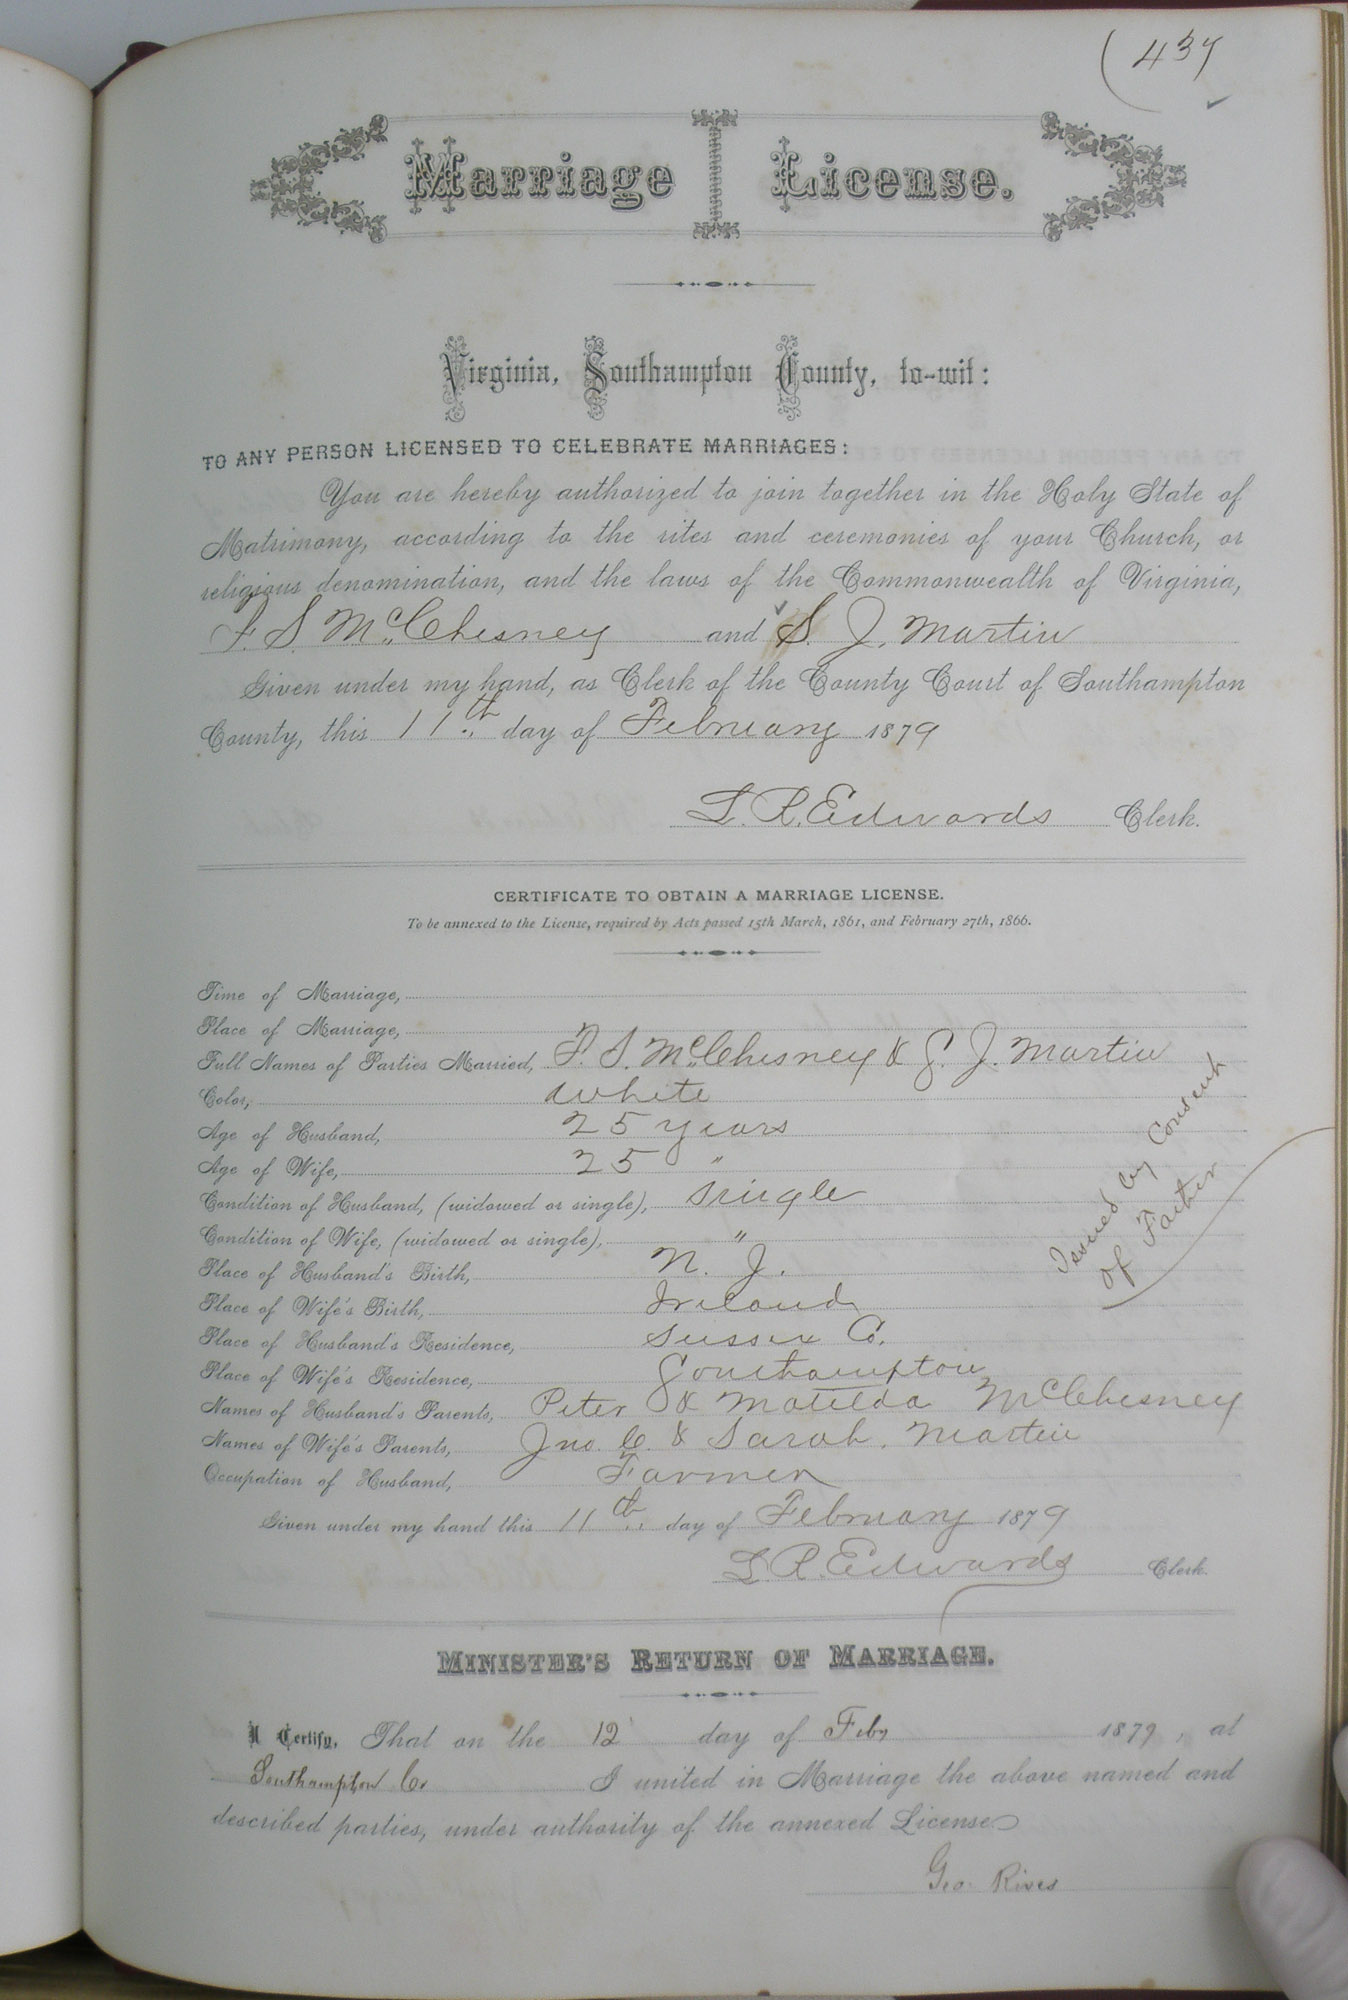 (437
Marriage License.
Virginia, Southampton County, to-wit:
TO ANY PERSON LICENSED TO CELEBRATE MARRIAGES:
You are hereby authorized to join together in the Holy State of
Matrimony, according to the rites and ceremonies of your Church, or
religious denomination, and the laws of the Commonwealth of Virginia,
F. S. McChesney and S. J. Martin
Given under my hand, as Clerk of the County Court of Southampton
County, this 11th day of February 1879
L. R. Edwards Clerk.
CERTIFICATE TO OBTAIN A MARRIAGE LICENSE.
To be annexed to the License, required by Acts passed 15th March, 1861, and February 27th, 1866.
Time of Marriage,
Place of Marriage,
Full Names of Parties Married, F. S. McChesney & S. J. Martin
Color, White
Age of Husband, 25 years
Age of Wife, 25 "
Condition of Husband, (widowed or single), Single
Condition of Wife, (widowed or single), "
Place of Husband's Birth, N. J.
Place of Wife's Birth, Ireland
Place of Husband's Residence, Sussex Co.
Place of Wife's Residence, Southampton
Names of Husband's Parents, Peter & Matilda McChesney
Names of Wife's Parents, Jno. C. & Sarah Martin
Occupation of Husband, Farmer
Issued by Consent
of Father
Given under my hand this 11th day of February 1879
L. R. Edwards Clerk.
MINISTER'S RETURN OF MARRIAGE.
I Certify, That on the 12 day of Feby 1879, at
Southampton Co. I united in Marriage the above named and
described parties, under authority of the annexed License
Geo. Rives